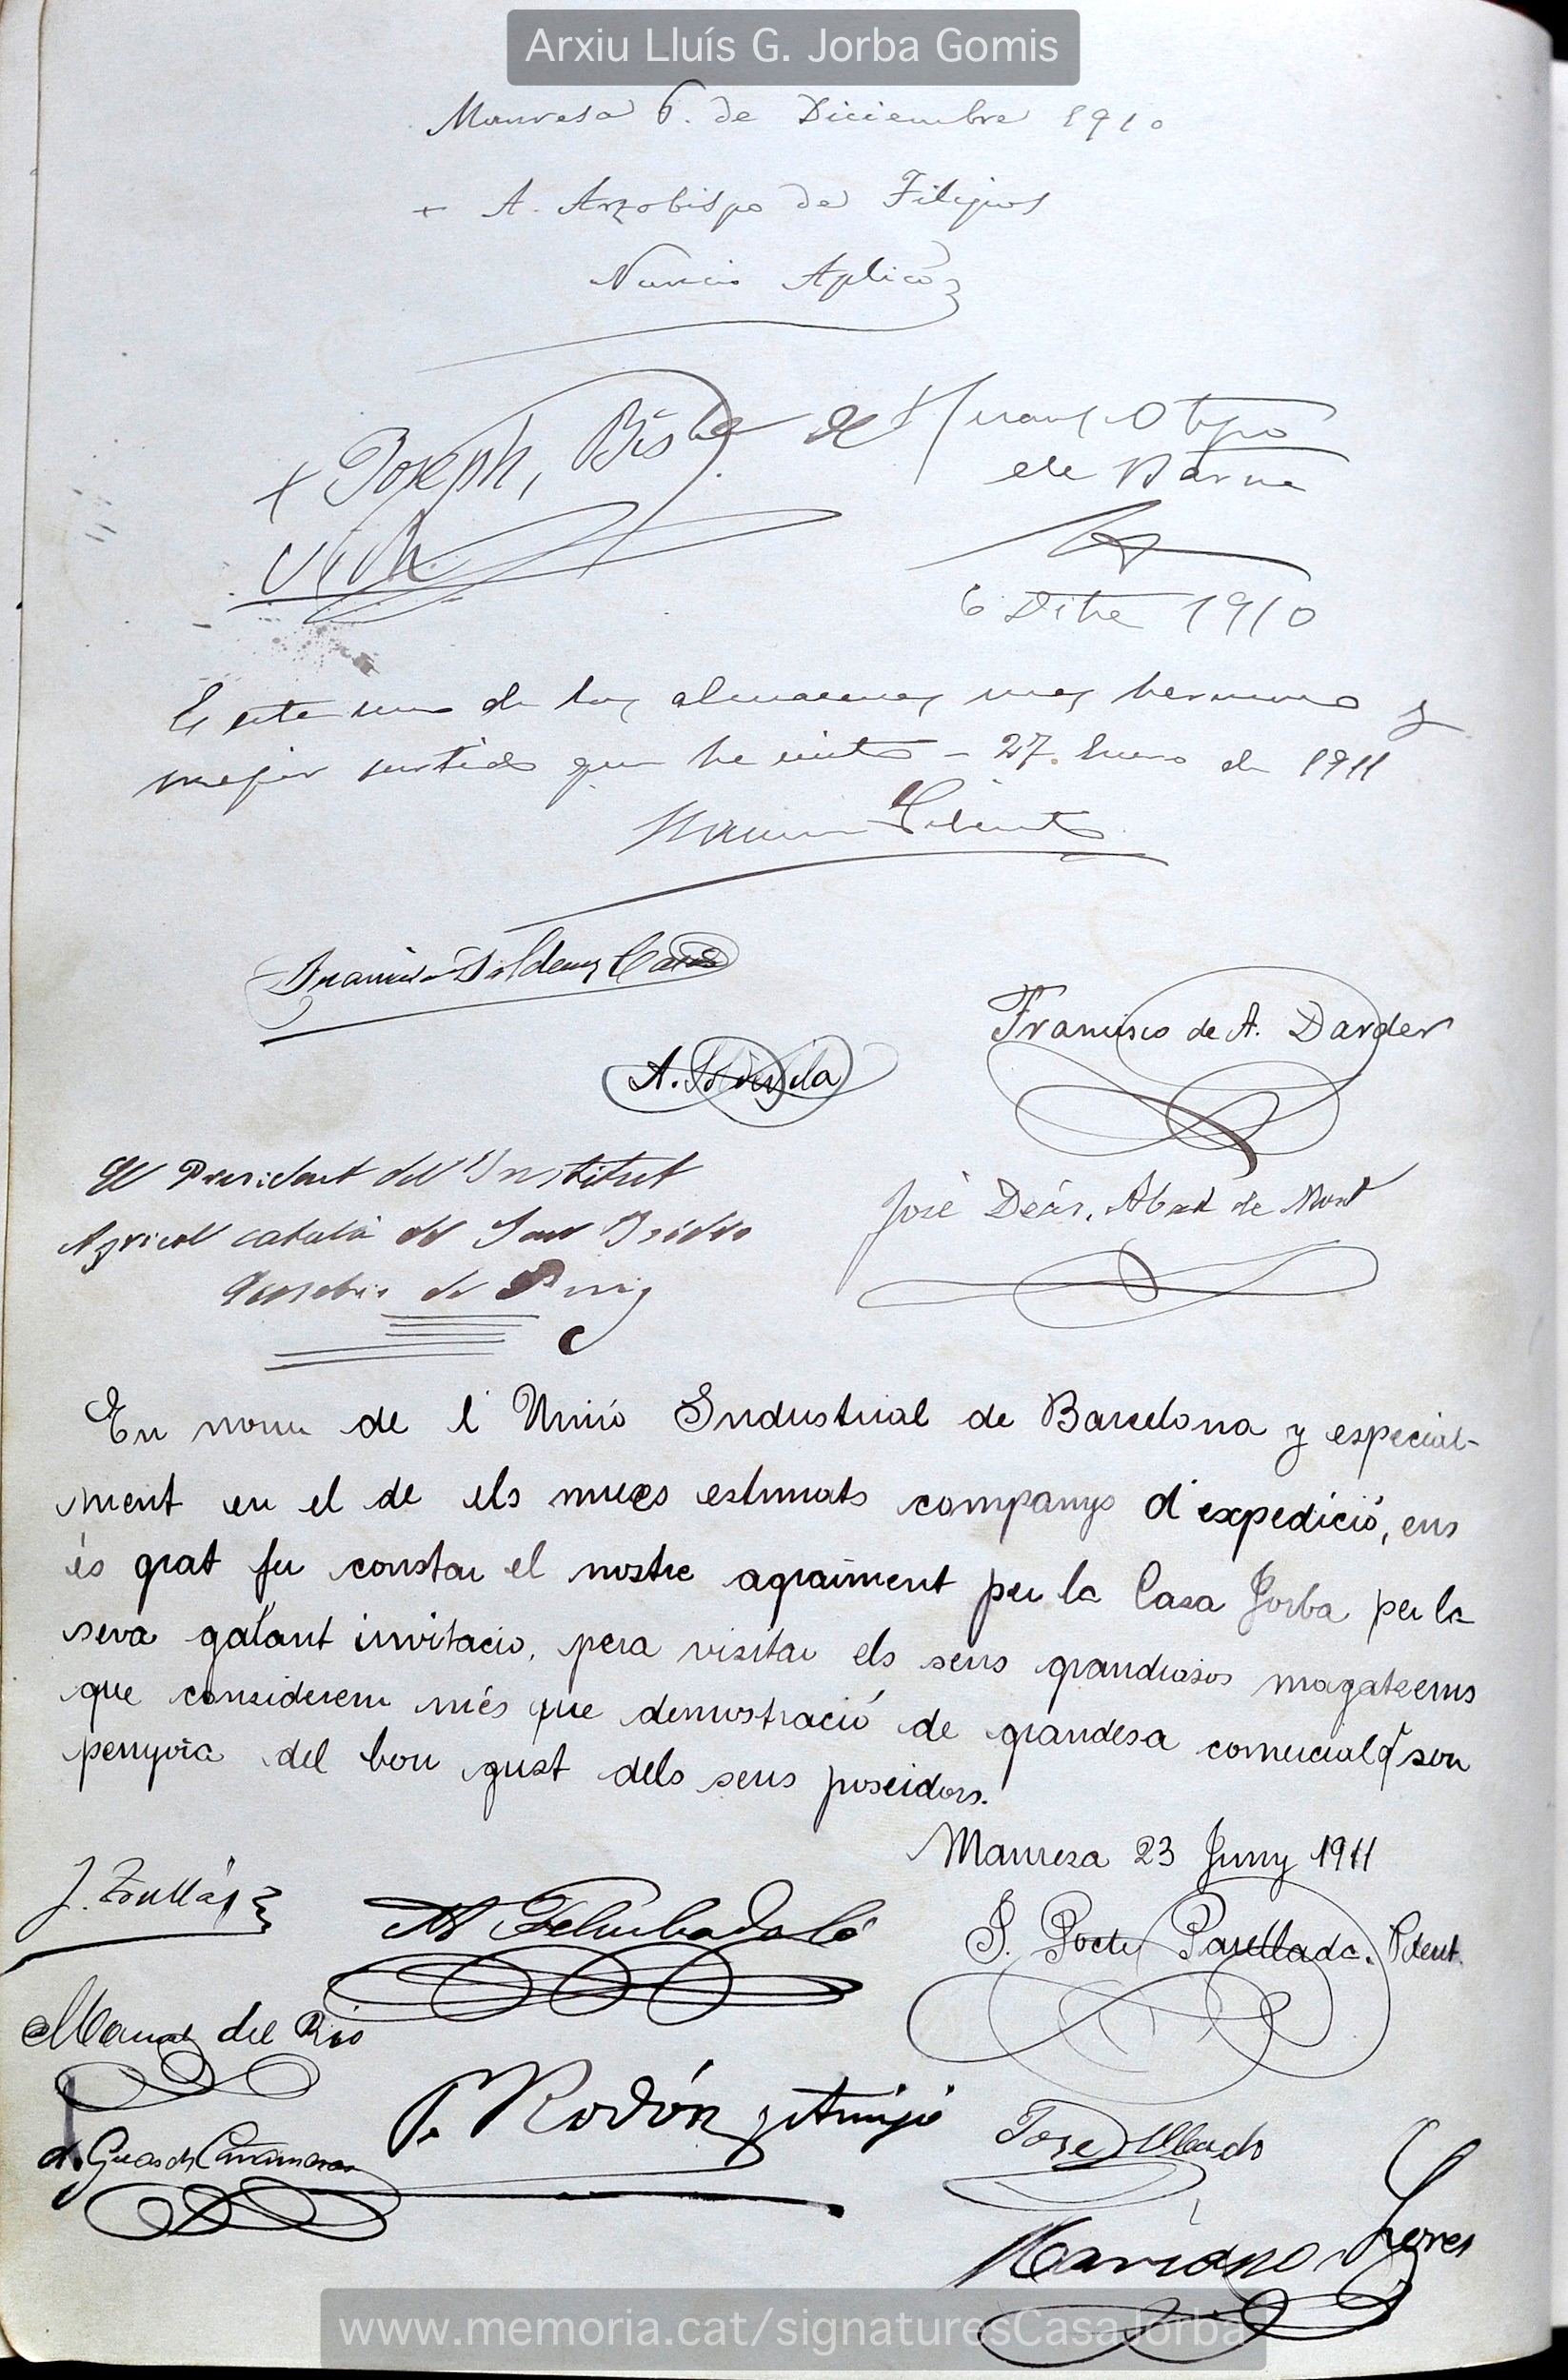 Arxiu Lluís G. Jorba Gomis
Manresa 6. de Diciembre 1910
+ A. Arzobispo de Filipos
Nuncio Aplico
+ Joseph, Bisbe de
Vich
Juan Obpo
de Barna
6 Dibre 1910
Es este uno de los almacenes mas hermoso y
mejor surtido que he visto - 27. Enero de 1911
Francisco de A. Darder
El President del Institut
Agricol català de Sant Isidro
Eusebi de Puig
José Deás, Abad de Mont
En nom de l'Unió Industrial de Barcelona y especial-
ment en el de els meus estimats companys d'expedició, ens
és grat fer constar el nostre agraiment per la Casa Jorba per la
seva galant invitació, pera visitar els seus grandiosos magatzems
que considerem més que demostració de grandesa comercial q son
penyora del bon gust dels seus poseidors.
Manresa 23 Juny 1911
J. Trullás
M Feliubadaló
P. Parellada. Pdent.
Manuel del Rio
P. Rodón y Amigó
José
Mariano
www.memoria.cat/signaturesCasaJorba